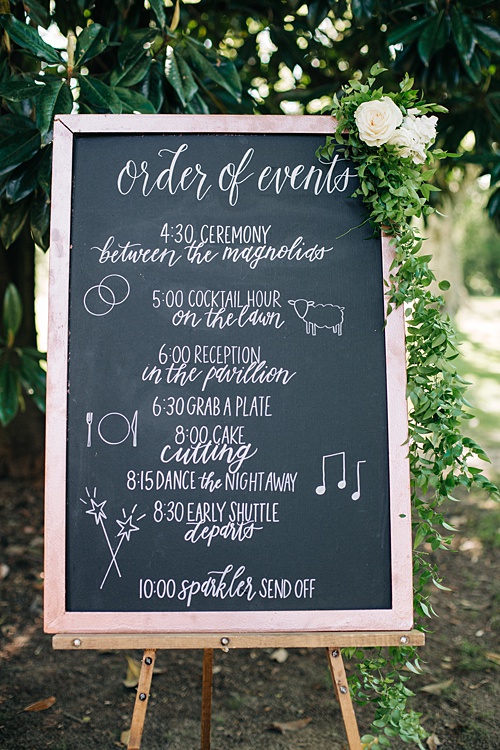 order of events
4:30 CEREMONY
between the magnolias
5:00 COCKTAIL HOUR
on the lawn
6:00 RECEPTION
in the pavillion
6:30 GRAB A PLATE
8:00 CAKE
cutting
8:15 DANCE the NIGHT AWAY
8:30 EARLY SHUTTLE
departs
10:00 sparkler SEND OFF